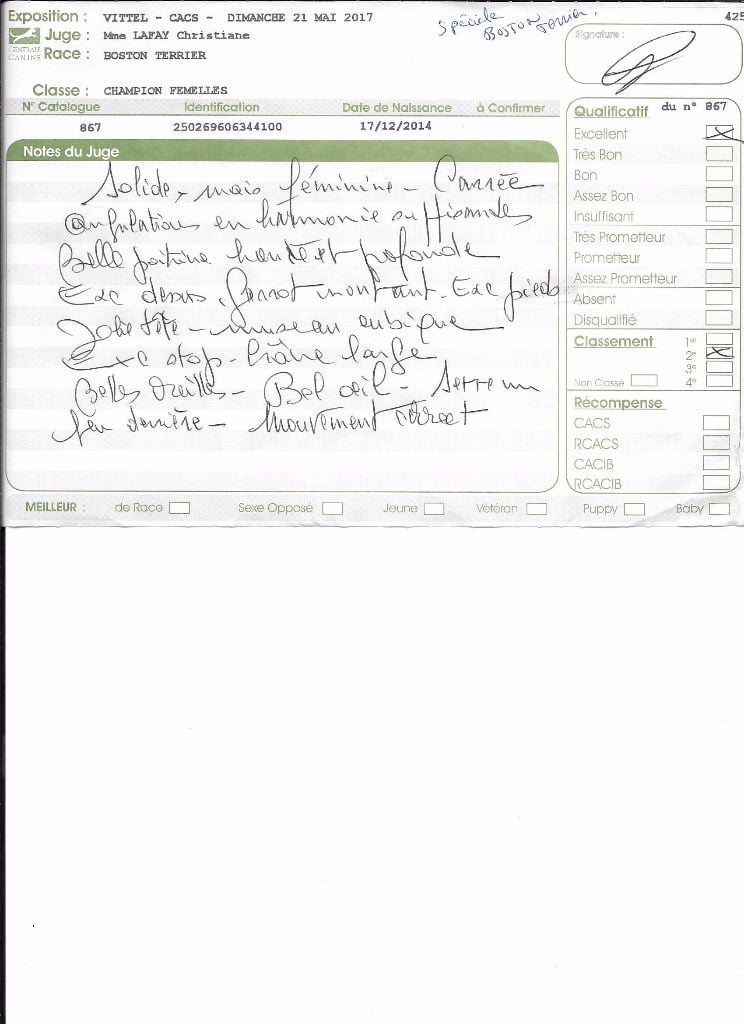 Exposition : VITTEL - CACS - DIMANCHE 21 MAI 2017
Spéciale
BOSTON Terrier.
425
CENTRALE
CANINE
Juge : Mme LAFAY Christiane
Race : BOSTON TERRIER
Signature :
Classe : CHAMPION FEMELLES
N° Catalogue Identification Date de Naissance à Confirmer
867 250269606344100 17/12/2014
Notes du Juge
Solide, mais féminine - Carrée
angulations en harmonie suffisantes
Belle poitrine haute et profonde
Exc dessus. Garrot montant. Exc pieds
Jolie tête - museau cubique
Exc stop - Crâne large
Belles Oreilles - Bel œil - Serre un
peu derrière - Mouvement correct
Qualificatif du n° 867
Excellent X
Très Bon
Bon
Assez Bon
Insuffisant
Très Prometteur
Prometteur
Assez Prometteur
Absent
Disqualifié
Classement 1er
2e X
3e
Non Classé 4e
Récompense
CACS
RCACS
CACIB
RCACIB
MEILLEUR : de Race Sexe Opposé Jeune Vétéran Puppy Baby